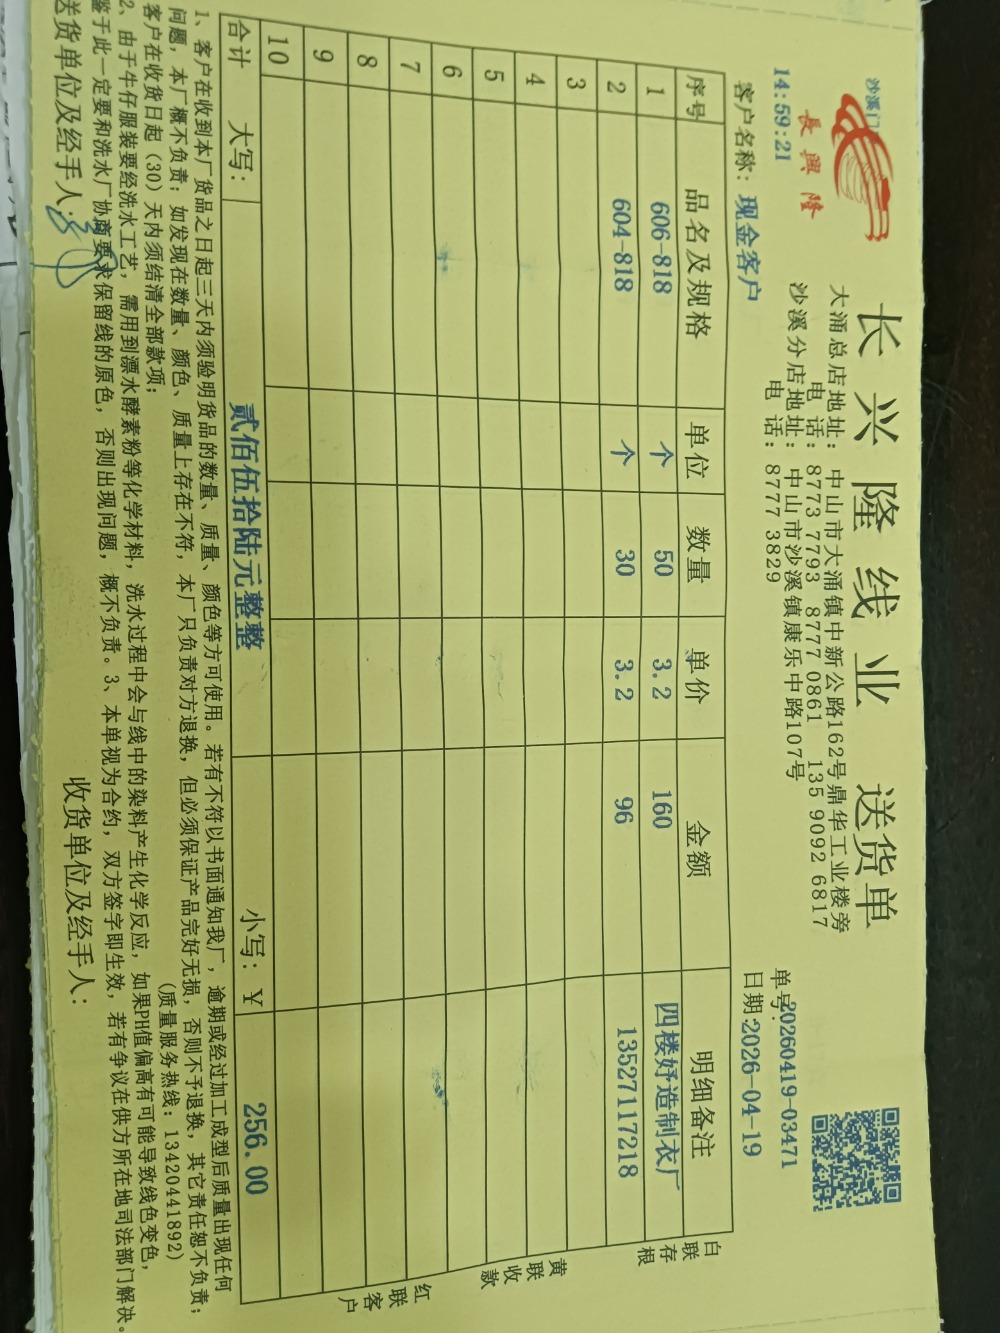 沙溪门
長興隆
长兴隆线业 送货单
大涌总店地址：中山市大涌镇中新公路162号鼎华工业楼旁
电 话：8773 7793 8777 0861 135 9092 6817
14:59:21
沙溪分店地址：中山市沙溪镇康乐中路107号
电 话：8777 3829
单号：20260419-03471
客户名称：现金客户
日期：2026-04-19
序号 品名及规格 单位 数量 单价 金额 明细备注
1 606-818 个 50 3.2 160 四楼妤造制衣厂
2 604-818 个 30 3.2 96 13527117218
3
4
5
6
7
8
9
10
合计 大写：贰佰伍拾陆元整整 小写：￥ 256.00
白联存根
黄联收款
红联客户
1、客户在收到本厂货品之日起三天内须验明货品的数量、质量、颜色等方可使用。若有不符以书面通知我厂，逾期或经过加工成型后质量出现任何
问题，本厂概不负责；如发现在数量、颜色、质量上存在不符，本厂只负责对方退换，但必须保证产品完好无损，否则不予退换，其它责任恕不负责；
客户在收货日起（30）天内须结清全部款项；
（质量服务热线：13420441892）
2、由于牛仔服装要经洗水工艺，需用到漂水酵素粉等化学材料，洗水过程中会与线中的染料产生化学反应，如果PH值偏高有可能导致线色变色，
鉴于此一定要和洗水厂协商要求保留线的原色，否则出现问题，概不负责。3、本单视为合约，双方签字即生效，若有争议在供方所在地司法部门解决。
送货单位及经手人：
收货单位及经手人：